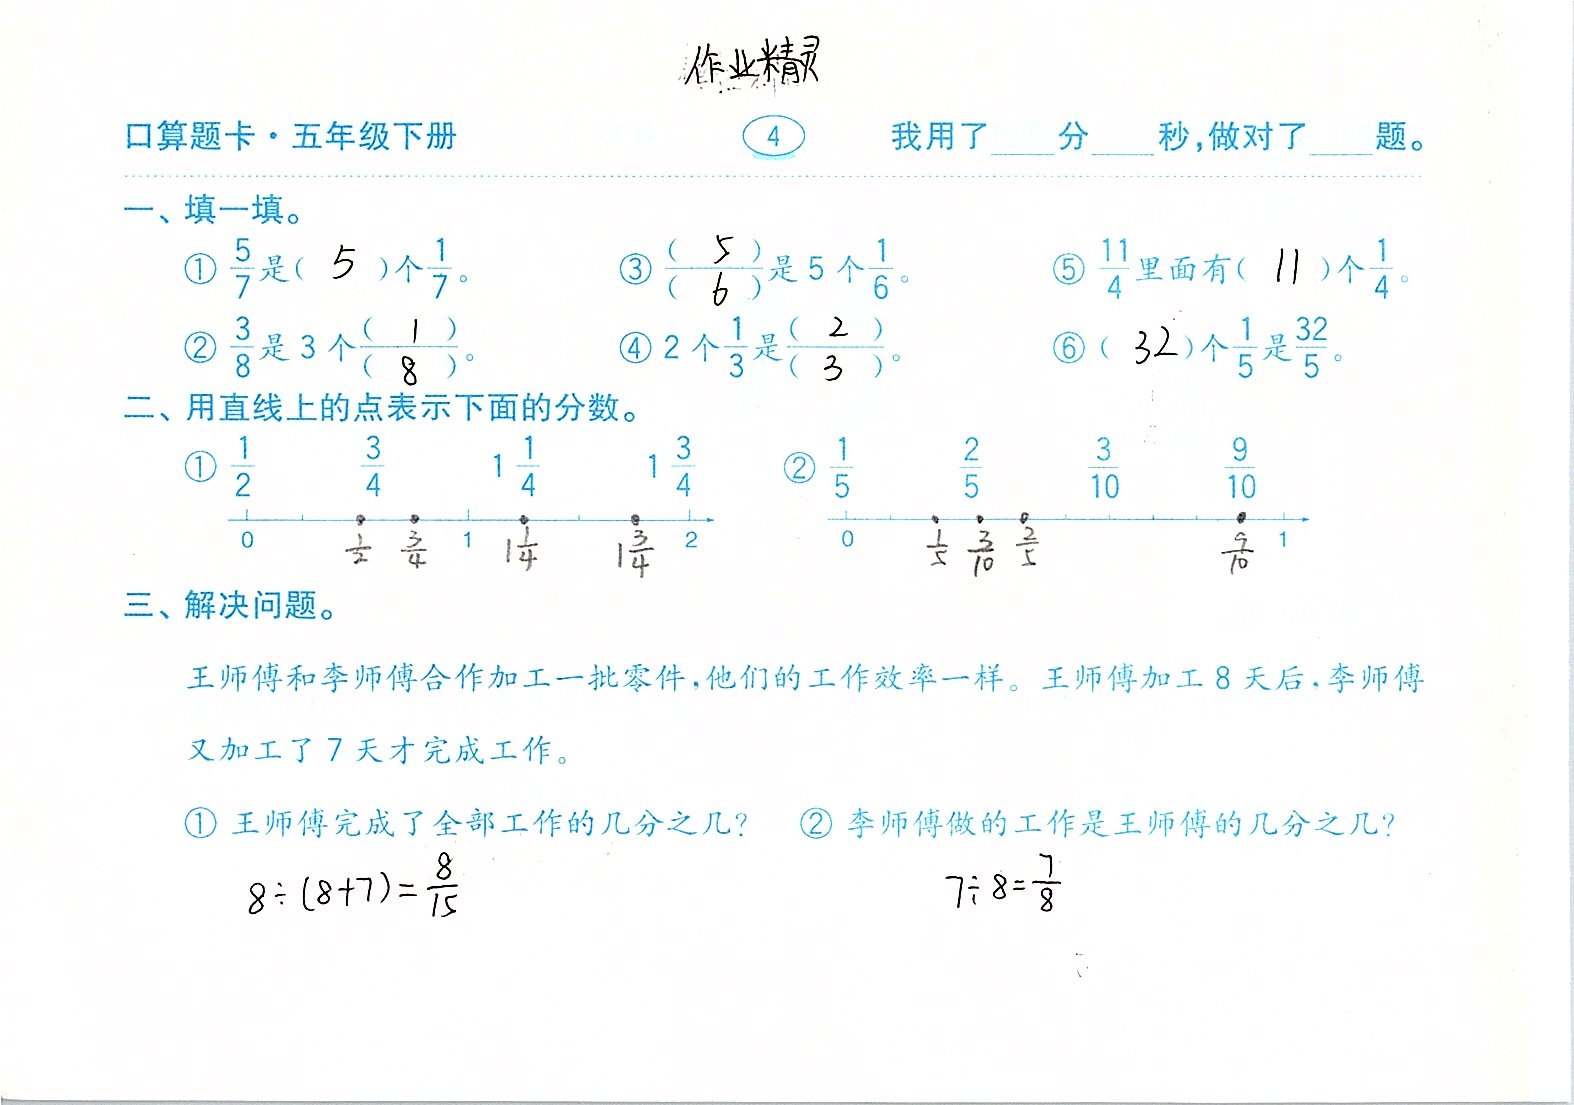 作业精灵
口算题卡·五年级下册 4 我用了____分____秒,做对了____题。
一、填一填。
① 5/7是( 5 )个1/7。 ③ ( 5 )/( 6 )是5个1/6。 ⑤ 11/4里面有( 11 )个1/4。
② 3/8是3个( 1 )/( 8 )。 ④ 2个1/3是( 2 )/( 3 )。 ⑥ ( 32 )个1/5是32/5。
二、用直线上的点表示下面的分数。
① 1/2 3/4 1 1/4 1 3/4 ② 1/5 2/5 3/10 9/10
0 1/2 3/4 1 1 1/4 1 3/4 2 0 1/5 3/10 2/5 9/10 1
三、解决问题。
王师傅和李师傅合作加工一批零件,他们的工作效率一样。王师傅加工8天后,李师傅
又加工了7天才完成工作。
① 王师傅完成了全部工作的几分之几? ② 李师傅做的工作是王师傅的几分之几?
8÷(8+7)=8/15 7÷8=7/8